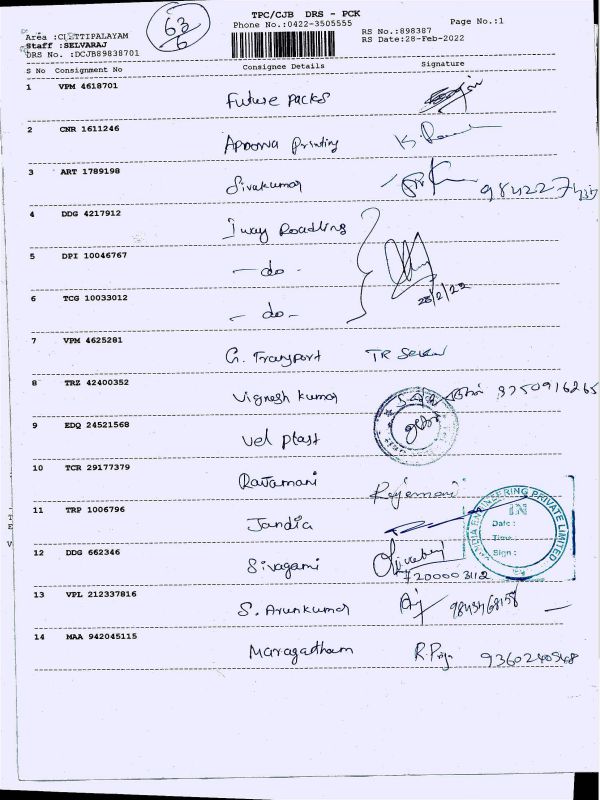 63
6
TPC/CJB DRS - PCK
Phone No.:0422-3505555
Page No.:1
Area :CHETTIPALAYAM
Staff :SELVARAJ
DRS No. :DCJB89838701
RS No.:898387
RS Date:28-Feb-2022
S No Consignment No Consignee Details Signature
1 VPM 4618701 Future Packs
2 CNR 1611246 Apoorva Printing
3 ART 1789198 Sivakumar
4 DDG 4217912 Iway Roadling
5 DPI 10046767 - do -
6 TCG 10033012 - do - 28/2/22
7 VPM 4625281 G. Transport TR
8 TRZ 42400352 Vignesh Kumar 8750916265
9 EDQ 24521568 Vel Plast
10 TCR 29177379 Rajamani Rajamani
11 TRP 1006796 Jandia
12 DDG 662346 Sivagami
7200003112
ENGINEERING PRIVATE LIMITED
IN
Date :
Time :
Sign :
13 VPL 212337816 S. Arunkumar
14 MAA 942045115 Maragatham R. Priya 9360240548